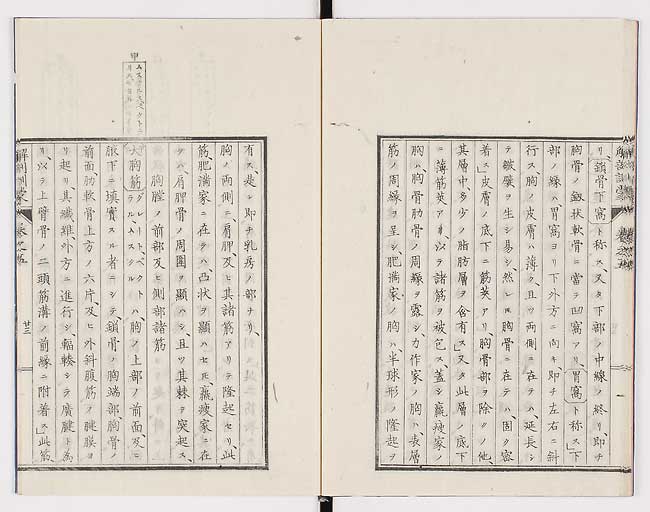 リ、鎖骨下窩ト称ス、又タ下部ノ中線ノ終リ、即チ
胸骨ノ劔状軟骨ニ當テ凹窩アリ、胃窩ト称ス」下
部ノ縁ハ胃窩ヨリ下外方ニ向キ即チ左右ニ斜
行ス胸ノ皮膚ハ薄ク、且ツ両側ニ在テハ、延長シ
テ皺襞ヲ生シ易シ、然レ𪜈胸骨ニ在テハ、固ク密
着ス」皮膚ノ底下ニ筋莢アリ胸骨部ヲ除クノ他、
其層中多少ノ脂肪層ヲ含有ス」又タ此層ノ底下
ニ薄筋莢アリ、以テ諸筋ヲ被包ス蓋シ羸痩家ノ
ハ、胸骨肋骨ノ周縁ヲ露シ力作家ノ胸ハ、表層
筋ノ周縁ヲ呈シ肥満家ノ胸ハ、半球形ノ隆起ヲ
有ス、是レ即チ乳房ノ部ナリ、
胸ノ両側ニ、肩胛及ヒ其諸筋アリテ隆起セリ、此
筋肥満家ニ在テハ、凸状ヲ顯ハセ𪜈、羸痩家ニ在
テハ、肩胛骨ノ周囲ヲ顯ハシ、且ツ其棘ヲ突起ス、
胸膛ノ前部及ヒ側部諸筋
大胸筋 ハ胸ノ上部ノ前面、及ヒ
脹下ニ填實スル者ニシテ、鎖骨ノ胸端部、胸骨ノ
前面肋軟骨上方ノ六片及ヒ外斜腹筋ノ腱膜ヨ
リ起リ、其纖維、外方ニ進行シ、輻輳シテ廣腱ト爲
リ、以テ上臂骨ノ二頭筋溝ノ前縁ニ附着ス」此筋、
解剖訓蒙 巻之五 廿三
甲